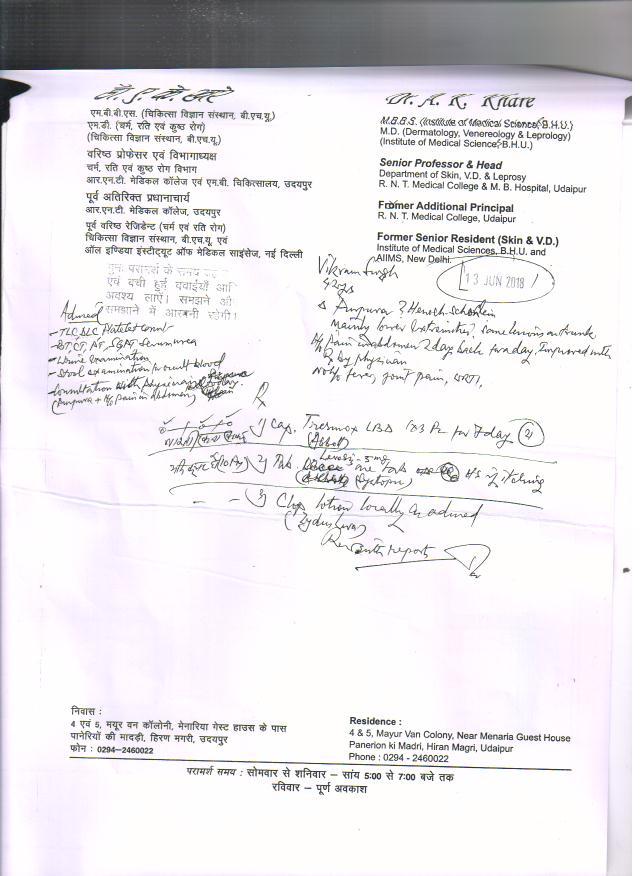 डॉ. ए. के. खरे
एम.बी.बी.एस. (चिकित्सा विज्ञान संस्थान, बी.एच.यू.)
एम.डी. (चर्म, रति एवं कुष्ठ रोग)
(चिकित्सा विज्ञान संस्थान, बी.एच.यू.)
वरिष्ठ प्रोफेसर एवं विभागाध्यक्ष
चर्म, रति एवं कुष्ठ रोग विभाग
आर.एन.टी. मेडिकल कॉलेज एवं एम.बी. चिकित्सालय, उदयपुर
पूर्व अतिरिक्त प्रधानाचार्य
आर.एन.टी. मेडिकल कॉलेज, उदयपुर
पूर्व वरिष्ठ रेजिडेन्ट (चर्म एवं रति रोग)
चिकित्सा विज्ञान संस्थान, बी.एच.यू. एवं
ऑल इण्डिया इंस्टीट्यूट ऑफ मेडिकल साइंसेज, नई दिल्ली
Dr. A. K. Khare
M.B.B.S. (Institute of Medical Science, B.H.U.)
M.D. (Dermatology, Venereology & Leprology)
(Institute of Medical Science, B.H.U.)
Senior Professor & Head
Department of Skin, V.D. & Leprosy
R. N. T. Medical College & M. B. Hospital, Udaipur
Former Additional Principal
R. N. T. Medical College, Udaipur
Former Senior Resident (Skin & V.D.)
Institute of Medical Sciences, B.H.U. and
AIIMS, New Delhi.
13 JUN 2018
एवं बची हुई दवाईयाँ
अवश्य लाएं। समझने
समझाने में आसानी रहेगी।
Vikram Singh
42yrs
Purpura ? Henoch-Schonlein
Mainly lower extremities, some lesions on trunk
H/o Pain in abdomen 2 day back for a day, Improved with
Rx by physician
No H/o fever, joint pain, URTI,
Advised
- TLC DLC Platelet count
- BT, CT, SGPT Serum urea
- Urine examination
- Stool examination for occult blood
- Consultation with physician
(Purpura + H/o pain in abdomen)
Rx
1) Cap. LBD 1x3 for 7 day
(Abbott)
2) Tab. - 5mg one tab HS if itching
3) lotion locally as advised
Rev with report
निवास :
4 एवं 5, मयूर वन कॉलोनी, मेनारिया गेस्ट हाउस के पास
पानेरियों की मादड़ी, हिरण मगरी, उदयपुर
फोन : 0294-2460022
Residence :
4 & 5, Mayur Van Colony, Near Menaria Guest House
Panerion ki Madri, Hiran Magri, Udaipur
Phone : 0294 - 2460022
परामर्श समय : सोमवार से शनिवार – सांय 5:00 से 7:00 बजे तक
रविवार – पूर्ण अवकाश